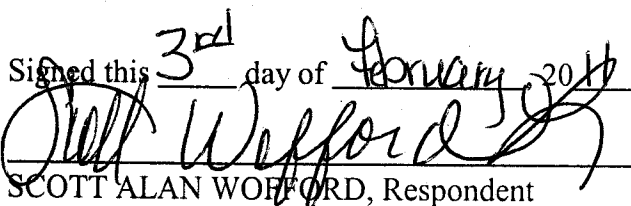 Signed this 3rd day of February, 20
Scott Wofford
SCOTT ALAN WOFFORD, Respondent